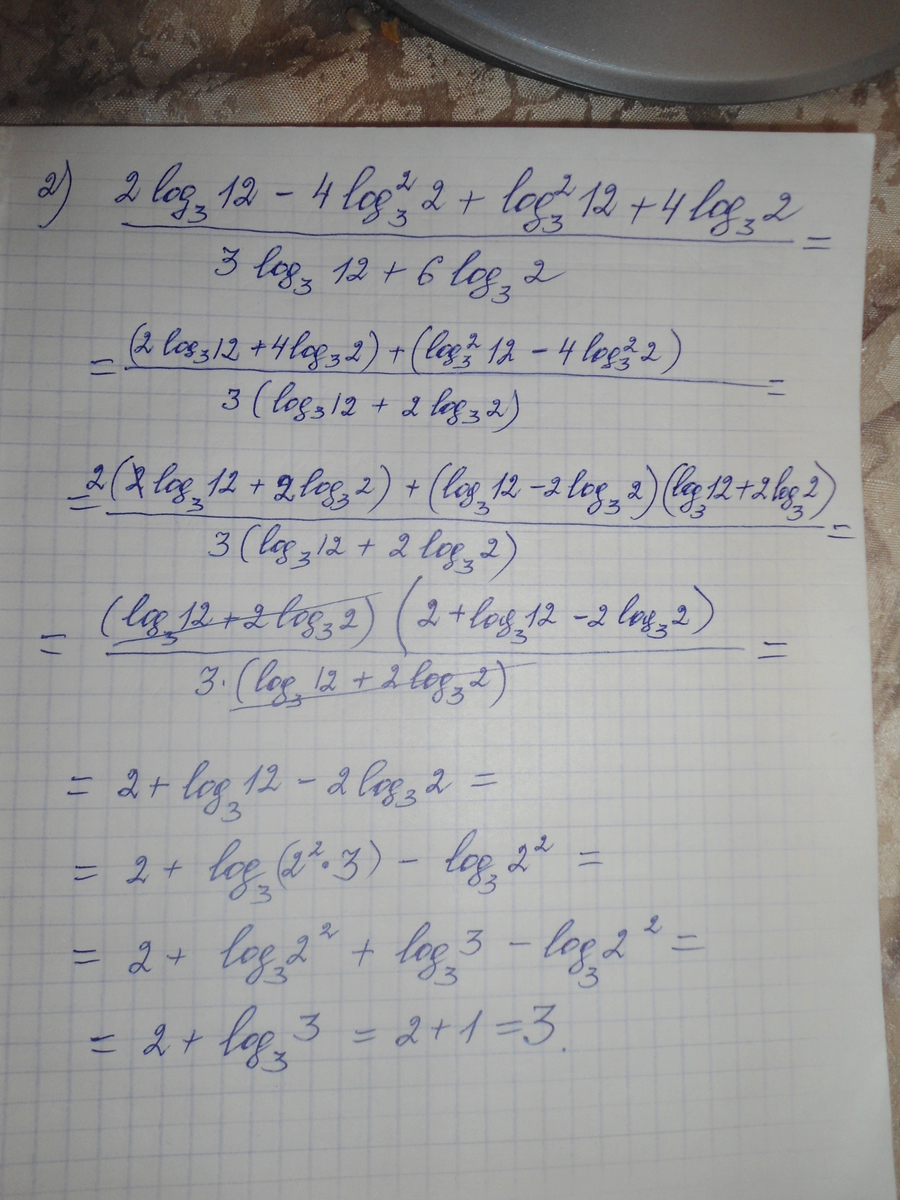 2) (2 log₃ 12 − 4 log₃² 2 + log₃² 12 + 4 log₃ 2) / (3 log₃ 12 + 6 log₃ 2) =
= ((2 log₃ 12 + 4 log₃ 2) + (log₃² 12 − 4 log₃² 2)) / (3 (log₃ 12 + 2 log₃ 2)) =
= (2 (log₃ 12 + 2 log₃ 2) + (log₃ 12 − 2 log₃ 2)(log₃ 12 + 2 log₃ 2)) / (3 (log₃ 12 + 2 log₃ 2)) =
= ((log₃ 12 + 2 log₃ 2) (2 + log₃ 12 − 2 log₃ 2)) / (3 · (log₃ 12 + 2 log₃ 2)) =
= 2 + log₃ 12 − 2 log₃ 2 =
= 2 + log₃ (2² · 3) − log₃ 2² =
= 2 + log₃ 2² + log₃ 3 − log₃ 2² =
= 2 + log₃ 3 = 2 + 1 = 3.